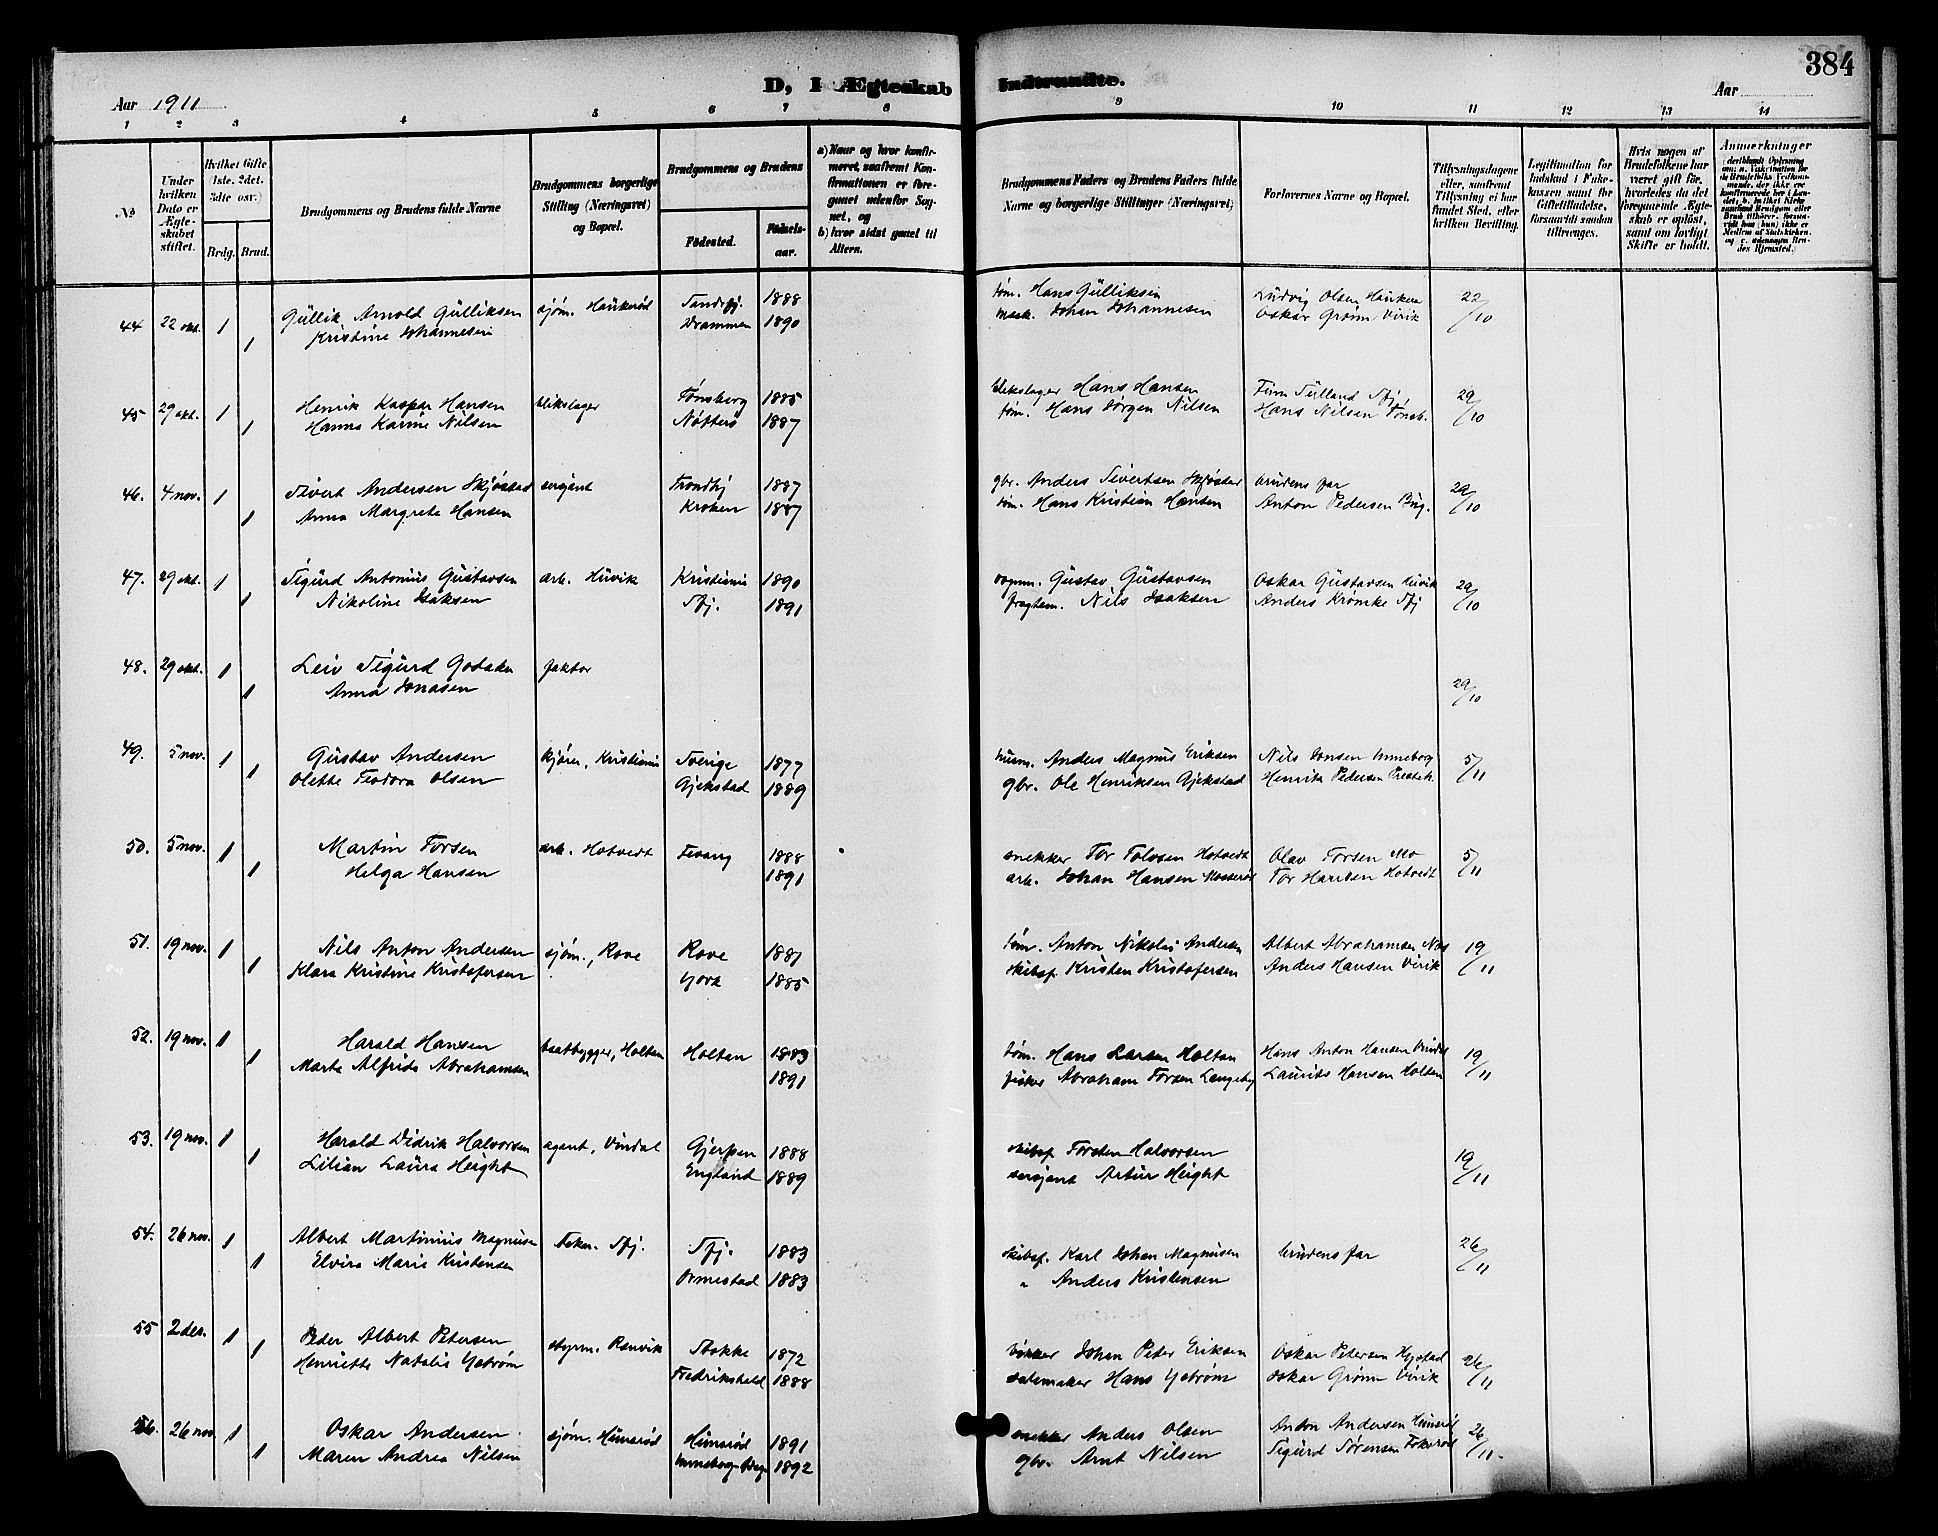 384
D, I Ægteskab Indtraadte.
Aar 1911
Aar
1 2 3 4 5 6 7 8 9 10 11 12 13 14
No
Under hvilken Dato er Ægteskabet stiftet.
Hvilket Gifte (1ste, 2det, 3dte osv.)
Brdg. Brud.
Brudgommens og Brudens fulde Navne
Brudgommens borgerlige Stilling (Næringsvei) og Bopæl.
Brudgommens og Brudens
Födested.
Födselsaar.
a) Naar og hvor konfirmeret, saafremt Konfirmationen er foregaaet udenfor Sognet, og
b) hvor sidst gaaet til Altern.
Brudgommens Faders og Brudens Faders fulde Navne og borgerlige Stillinger (Næringsvei)
Forlovernes Navne og Bopæl.
Tillysningsdagene eller, saafremt Tillysning ei har fundet Sted, efter hvilken Bevilling.
Legitimation for Indskud i Enkekassen samt for Giftetilladelse, forsaavidt saadan tiltrænges.
Hvis nogen af Brudefolkene har været gift før, hvorledes da det foregaaende Ægteskab er opløst, samt om lovligt Skifte er holdt.
Anmærkninger
44 22 okt. 1 Güllik Arnold Gülliksen sjøm. Haukerød Sandefj. 1888 tøm. Hans Gülliksen Ludvig Olsen Hauken 22/10
1 Kristine Johannesen Drammen 1890 mask. Johan Johannesen Oskar Grønn Virik
45 29 okt. 1 Henrik Kaspar Hansen blikslager Tønsberg 1885 blikslager Hans Hansen Finn Tülland Sfj. 29/10
1 Hanna Karine Nilsen Nøtterø 1887 tøm. Hans Jørgen Nilsen Hans Nilsen Tønsb.
46. 4 nov. 1 Sivert Andersen Skjøstad sergiant Trondhj 1887 gbr. Anders Sivertsen Skjøstad brudens far 29/10
1 Anna Margrete Hansen Kroken 1887 tøm. Hans Kristian Hansen Anton Pedersen Bug.
47. 29 okt. 1 Sigurd Antonius Gustavsen arb. Huvik Kristiania 1890 vognm. Gustav Gustavsen Oskar Gustavsen Huvik 29/10
1 Nikoline Isaksen Sfj. 1891 fragtem. Nils Isaksen Anders Krømke Sfj
48. 29 okt. 1 Leiv Sigurd faktor
1 Anna Jonasen 29/10
49. 5 nov. 1 Gustav Andersen kjører, Kristiania Sverige 1877 husm. Anders Magnus Eriksen Nils Jonsen Unneberg 5/11
1 Olette Teodora Olsen Gjekstad 1889 gbr. Ole Henriksen Gjekstad Henrik Pedersen Presteh.
50. 5 nov. 1 Martin Torsen arb. Hotvedt Tevang 1888 snekker Tor Tolvsen Hotvedt Olav Torsen Mo 5/11
1 Helga Hansen 1891 arb. Johan Hansen Mosserød Tor Hansen Hotvedt
51. 19 nov. 1 Nils Anton Andersen sjøm., Rove Rove 1887 tøm. Anton Nikolai Andersen Albert Abrahamsen 19/11
1 Klara Kristine Kristofersen 1885 skibsf. Kristen Kristofersen Anders Hansen Virik
52. 19 nov. 1 Harald Hansen baatbygger, Holtan Holtan 1883 tøm. Hans Larsen Holtan Hans Anton Hansen Vindal 19/11
1 Marta Alfrida Abrahamsen 1891 fisker Abraham Torsen Langeby Laurits Hansen Holtan
53. 19 nov. 1 Harald Didrik Halvorsen agent, Vindal Gjerpen 1888 skibsf. Torsten Halvorsen 19/11
1 Lilian Laura Height England 1889 sersjant Artur Height
54. 26 nov. 1 Albert Martinius Magnusen Sfj. Sfj. 1883 skibsf. Karl Johan Magnusen brudens far 26/11
1 Elvira Marie Kristensen Ormestad 1883 " Anders Kristensen
55 2 des. 1 Peder Albert Petersen styrm. Ranvik Stokke 1872 Johan Peter Eriksen Oskar Petersen Hystad 26/11
1 Henriette Natalia Ystrøm Fredrikshald 1888 salemaker Hans Ystrøm Oskar Grønn Virik
56. 26 nov. 1 Oskar Andersen sjøm. Himsrød Himsrød 1891 snekker Anders Olsen Anton Andersen Himsrød 26/11.
1 Maren Andrea Nilsen 1892 gbr. Arnt Nilsen Sigurd Sørensen Fokserød